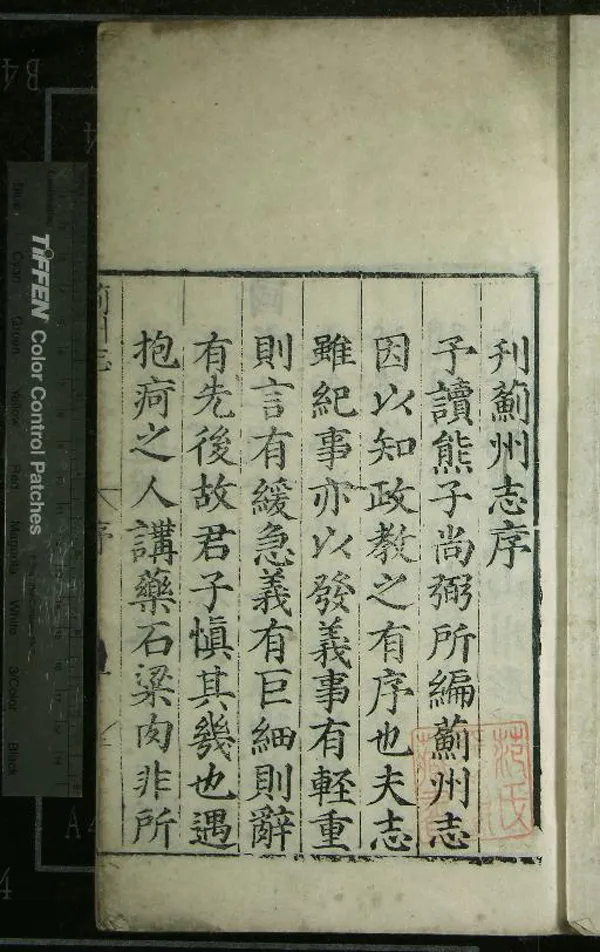 刋薊州志序
予讀熊子尚弼所編薊州志
因以知政教之有序也夫志
雖紀事亦以發義事有輕重
則言有緩急義有巨細則辭
有先後故君子慎其幾也遇
抱疴之人講藥石梁肉非所
薊州志
序
范氏
TIFFEN Color Control Patches